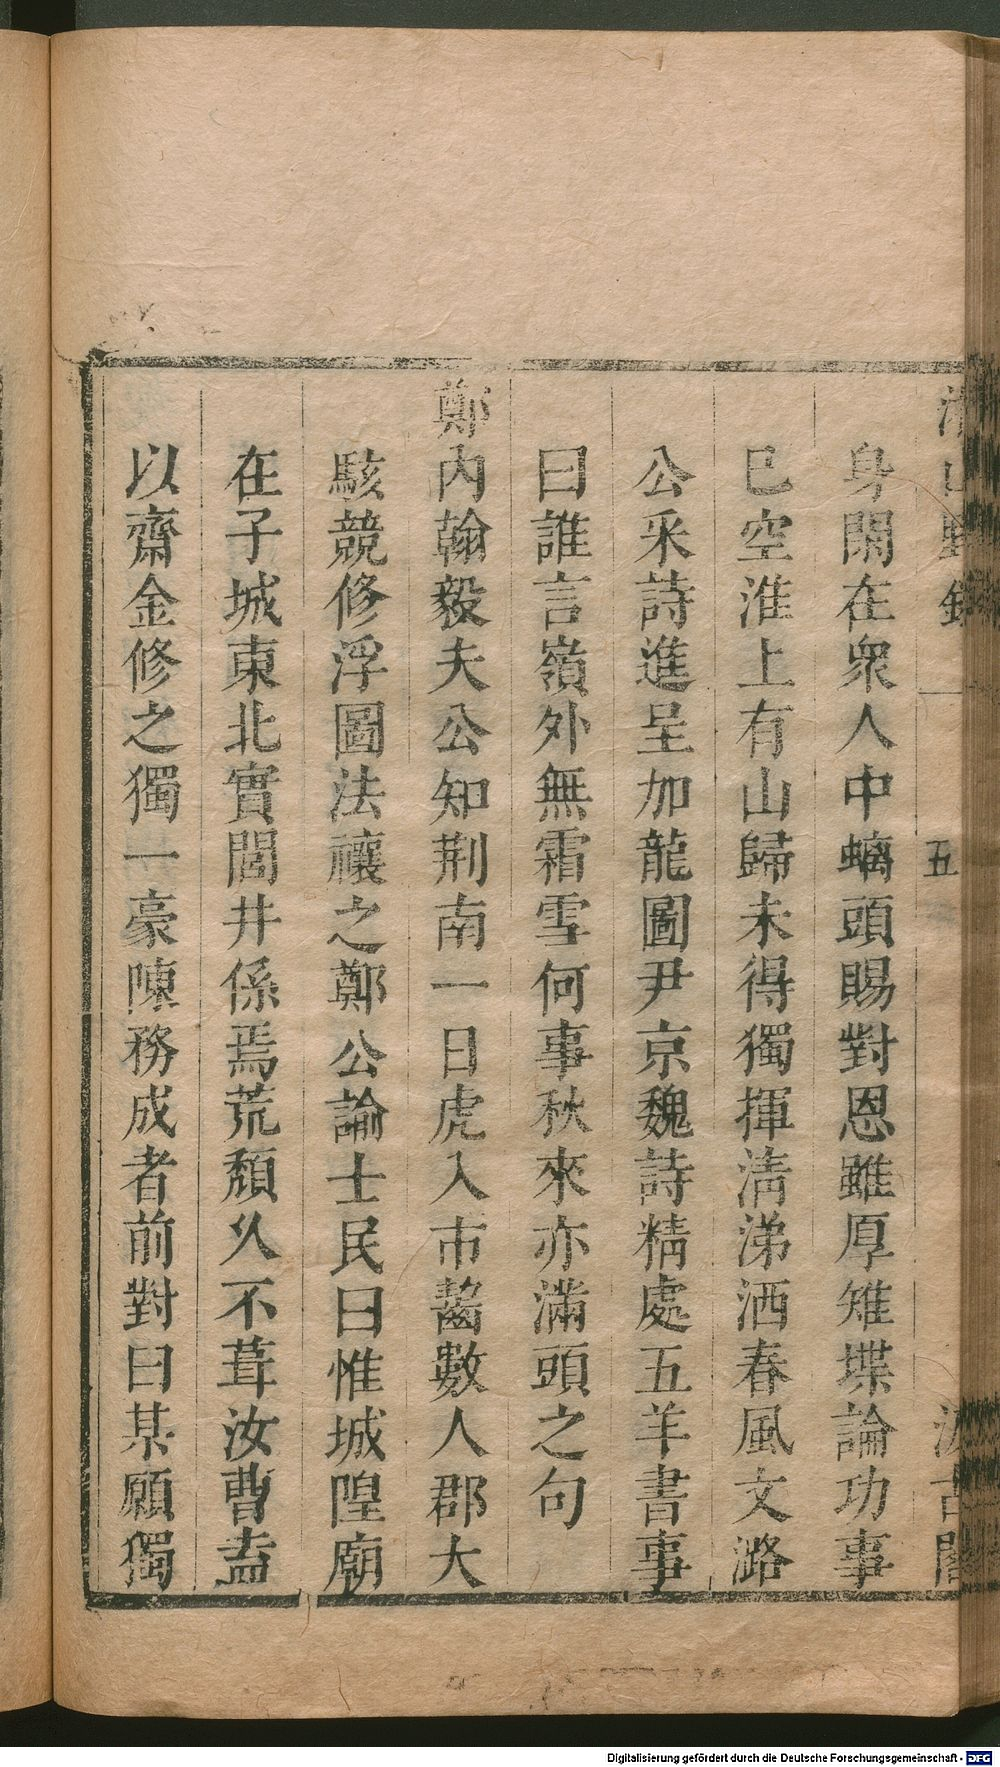 五
身閑在衆人中螭頭賜對恩雖厚雉堞論功事
已空淮上有山歸未得獨揮淸涕洒春風文潞
公采詩進呈加龍圖尹京魏詩精處五羊書事
曰誰言嶺外無霜雪何事秋來亦滿頭之句
鄭內翰毅夫公知荆南一日虎入市齧數人郡大
駭競修浮圖法禳之鄭公諭士民曰惟城隍廟
在子城東北實閭井係焉荒頽乆不葺汝曹盍
以齋金修之獨一豪陳務成者前對曰某願獨
Digitalisierung gefördert durch die Deutsche Forschungsgemeinschaft - DFG